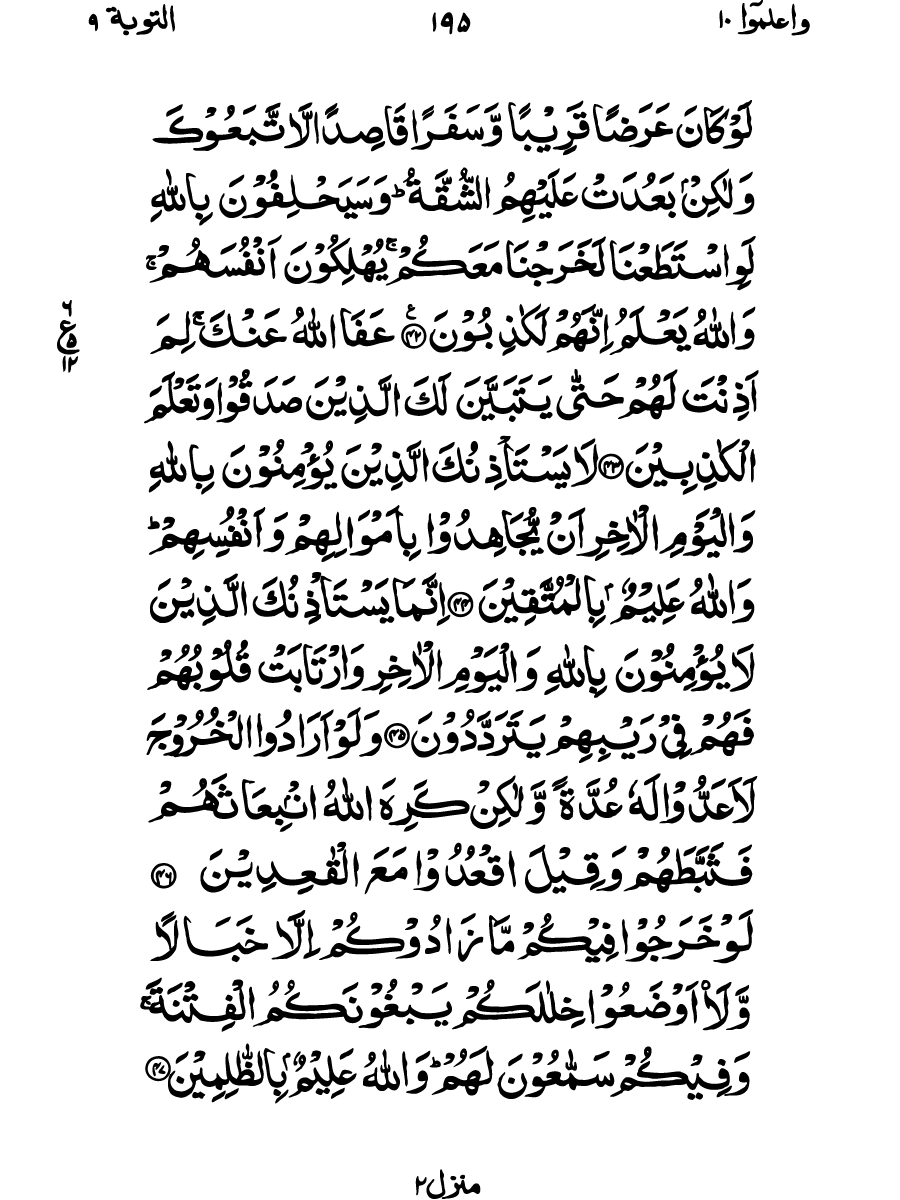 واعلموٓا ١٠
١٩٥
التوبة ٩
لَوْ كَانَ عَرَضًا قَرِيْبًا وَّسَفَرًا قَاصِدًا لَّاتَّبَعُوْكَ
وَلٰكِنْۢ بَعُدَتْ عَلَيْهِمُ الشُّقَّةُ ؕ وَسَيَحْلِفُوْنَ بِاللّٰهِ
لَوِ اسْتَطَعْنَا لَخَرَجْنَا مَعَكُمْ ۚ يُهْلِكُوْنَ اَنْفُسَهُمْ ۚ
وَاللّٰهُ يَعْلَمُ اِنَّهُمْ لَكٰذِبُوْنَ ۧ‏﴿۴۲﴾ عَفَا اللّٰهُ عَنْكَ ۚ لِمَ
٦
ع
۵
١٢
اَذِنْتَ لَهُمْ حَتّٰى يَتَبَيَّنَ لَكَ الَّذِيْنَ صَدَقُوْا وَتَعْلَمَ
الْكٰذِبِيْنَ ﴿۴۳﴾ لَا يَسْتَاْذِنُكَ الَّذِيْنَ يُؤْمِنُوْنَ بِاللّٰهِ
وَالْيَوْمِ الْاٰخِرِ اَنْ يُّجَاهِدُوْا بِاَمْوَالِهِمْ وَاَنْفُسِهِمْ ؕ
وَاللّٰهُ عَلِيْمٌۢ بِالْمُتَّقِيْنَ ﴿۴۴﴾ اِنَّمَا يَسْتَاْذِنُكَ الَّذِيْنَ
لَا يُؤْمِنُوْنَ بِاللّٰهِ وَالْيَوْمِ الْاٰخِرِ وَارْتَابَتْ قُلُوْبُهُمْ
فَهُمْ فِيْ رَيْبِهِمْ يَتَرَدَّدُوْنَ ﴿۴۵﴾ وَلَوْ اَرَادُوا الْخُرُوْجَ
لَاَعَدُّوْا لَهٗ عُدَّةً وَّلٰكِنْ كَرِهَ اللّٰهُ انْۢبِعَاثَهُمْ
فَثَبَّطَهُمْ وَقِيْلَ اقْعُدُوْا مَعَ الْقٰعِدِيْنَ ﴿۴۶﴾
لَوْ خَرَجُوْا فِيْكُمْ مَّا زَادُوْكُمْ اِلَّا خَبَالًا
وَّلَا۟اَوْضَعُوْا خِلٰلَكُمْ يَبْغُوْنَكُمُ الْفِتْنَةَ ۚ
وَفِيْكُمْ سَمّٰعُوْنَ لَهُمْ ؕ وَاللّٰهُ عَلِيْمٌۢ بِالظّٰلِمِيْنَ ﴿۴۷﴾
منزل ٢